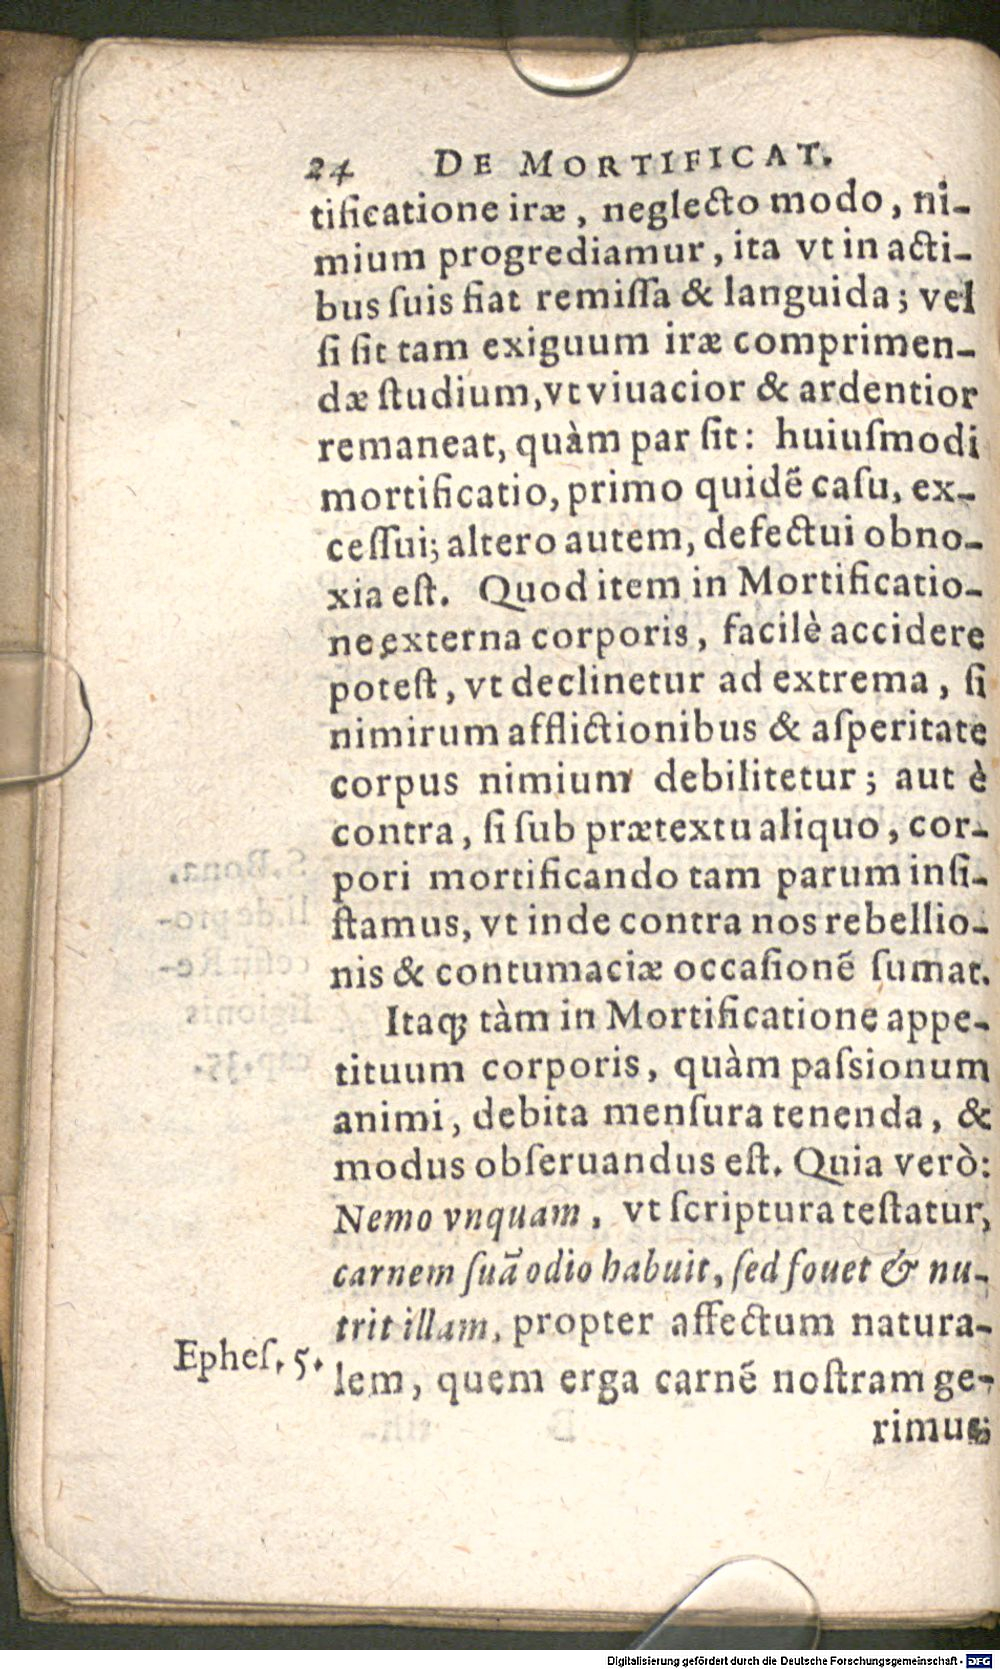 24 DE MORTIFICAT.
tificatione iræ, neglecto modo, ni-
mium progrediamur, ita vt in acti-
bus ſuis fiat remiſſa & languida; vel
ſi ſit tam exiguum iræ comprimen-
dæ ſtudium, vt viuacior & ardentior
remaneat, quàm par ſit: huiuſmodi
mortificatio, primo quidẽ caſu, ex-
ceſſui; altero autem, defectui obno-
xia eſt. Quod item in Mortificatio-
ne externa corporis, facilè accidere
poteſt, vt declinetur ad extrema, ſi
nimirum afflictionibus & aſperitate
corpus nimium debilitetur; aut è
contra, ſi ſub prætextu aliquo, cor-
pori mortificando tam parum inſi-
ſtamus, vt inde contra nos rebellio-
nis & contumaciæ occaſionẽ ſumat.
Itaq; tàm in Mortificatione appe-
tituum corporis, quàm paſsionum
animi, debita menſura tenenda, &
modus obſeruandus eſt. Quia verò:
Nemo vnquam, vt ſcriptura teſtatur,
carnem ſuã odio habuit, ſed fouet & nu-
trit illam, propter affectum natura-
Epheſ. 5.
lem, quem erga carnẽ noſtram ge-
rimus;
Digitalisierung gefördert durch die Deutsche Forschungsgemeinschaft - DFG